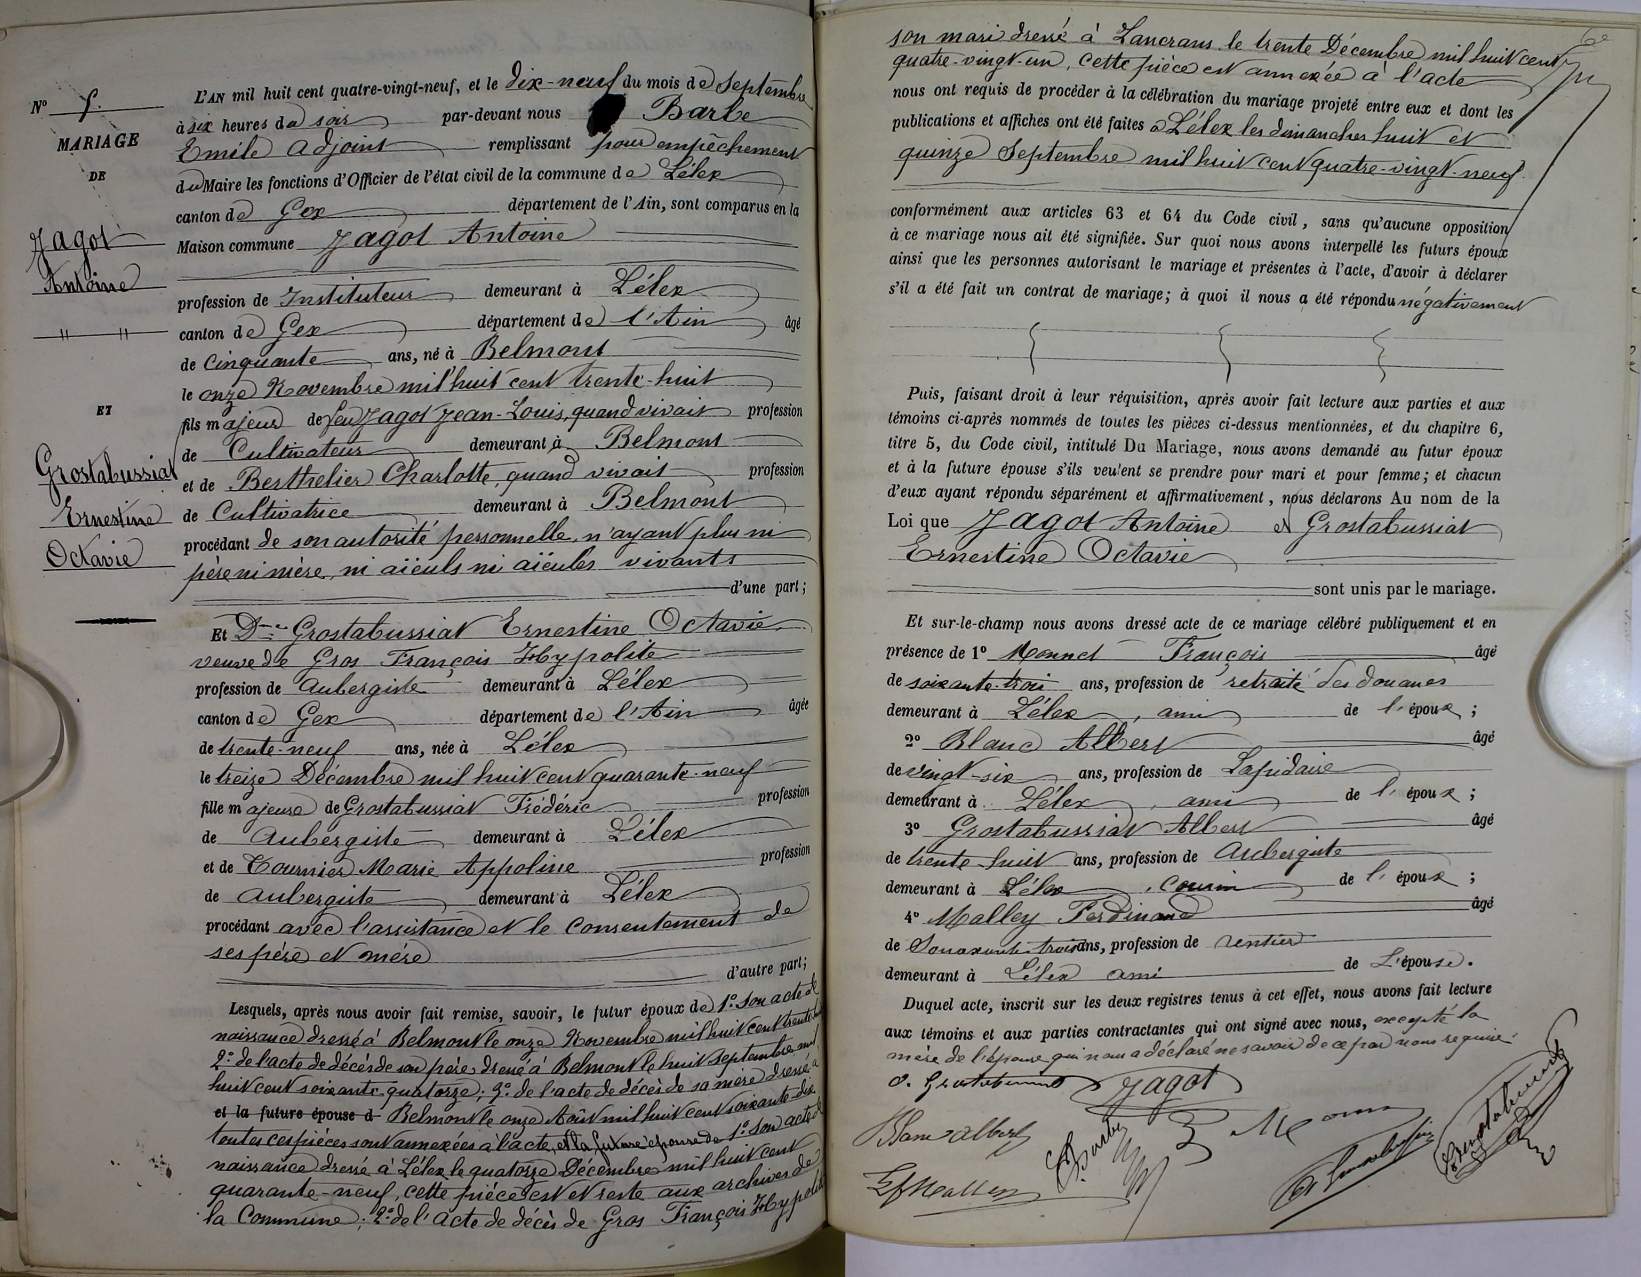 N° 5.
MARIAGE
DE
Jagot
Antoine
" "
ET
Grostabussiat
Ernestine
Octavie
L'AN mil huit cent quatre-vingt-neuf, et le dix-neuf du mois de Septembre
à six heures du soir par-devant nous Barbe
Emile adjoint remplissant pour empêchement
du Maire les fonctions d'Officier de l'état civil de la commune de Lélex
canton de Gex département de l'Ain, sont comparus en la
Maison commune Jagot Antoine
profession de Instituteur demeurant à Lélex
canton de Gex département de l'Ain âgé
de cinquante ans, né à Belmont
le onze Novembre mil huit cent trente-huit
fils majeur de feu Jagot Jean-Louis, quand vivait profession
de Cultivateur demeurant à Belmont
et de Berthelier Charlotte, quand vivait profession
de Cultivatrice demeurant à Belmont
procédant de son autorité personnelle, n'ayant plus ni
père ni mère, ni aïeuls ni aïeules vivants
d'une part ;
Et Dme Grostabussiat Ernestine Octavie
veuve de Gros François Hypolite
profession de Aubergiste demeurant à Lélex
canton de Gex département de l'Ain âgée
de trente-neuf ans, née à Lélex
le treize Décembre mil huit cent quarante-neuf
fille majeure de Grostabussiat Frédéric profession
de Aubergiste demeurant à Lélex
et de Tournier Marie Appoline profession
de Aubergiste demeurant à Lélex
procédant avec l'assistance et le consentement de
ses père et mère
d'autre part ;
Lesquels, après nous avoir fait remise, savoir, le futur époux de 1° son acte de
naissance dressé à Belmont le onze Novembre mil huit cent trente huit
2° de l'acte de décès de son père dressé à Belmont le huit Septembre mil
huit cent soixante-quatorze ; 3° de l'acte de décès de sa mère dressé à
et la future épouse d Belmont le onze Août mil huit cent soixante-dix
toutes ces pièces sont annexées à l'acte, et la future épouse de 1° son acte de
naissance dressé à Lélex le quatorze Décembre mil huit cent
quarante-neuf, cette pièce est et reste aux archives de
la Commune ; 2° de l'acte de décès de Gros François Hypolite
6e
son mari dressé à Lancrans le trente Décembre mil huit cent
quatre-vingt-un, cette pièce est annexée à l'acte
nous ont requis de procéder à la célébration du mariage projeté entre eux et dont les
publications et affiches ont été faites à Lélex les dimanches huit et
quinze Septembre mil huit cent quatre-vingt-neuf
conformément aux articles 63 et 64 du Code civil, sans qu'aucune opposition
à ce mariage nous ait été signifiée. Sur quoi nous avons interpellé les futurs époux
ainsi que les personnes autorisant le mariage et présentes à l'acte, d'avoir à déclarer
s'il a été fait un contrat de mariage ; à quoi il nous a été répondu négativement
Puis, faisant droit à leur réquisition, après avoir fait lecture aux parties et aux
témoins ci-après nommés de toutes les pièces ci-dessus mentionnées, et du chapitre 6,
titre 5, du Code civil, intitulé Du Mariage, nous avons demandé au futur époux
et à la future épouse s'ils veulent se prendre pour mari et pour femme ; et chacun
d'eux ayant répondu séparément et affirmativement, nous déclarons Au nom de la
Loi que Jagot Antoine et Grostabussiat
Ernestine Octavie
sont unis par le mariage.
Et sur-le-champ nous avons dressé acte de ce mariage célébré publiquement et en
présence de 1° Monnet François âgé
de soixante-trois ans, profession de retraité des douanes
demeurant à Lélex, ami de l'époux ;
2° Blanc Albert âgé
de vingt-six ans, profession de Lapidaire
demeurant à Lélex, ami de l'époux ;
3° Grostabussiat Albert âgé
de trente-huit ans, profession de Aubergiste
demeurant à Lélex, cousin de l'époux ;
4° Malley Ferdinand âgé
de Soixante-trois ans, profession de rentier
demeurant à Lélex ami de L'épouse.
Duquel acte, inscrit sur les deux registres tenus à cet effet, nous avons fait lecture
aux témoins et aux parties contractantes qui ont signé avec nous, excepté la
mère de l'épouse qui nous a déclaré ne savoir de ce par nous requise.
Jagot
Blanc albert
E. Barbe